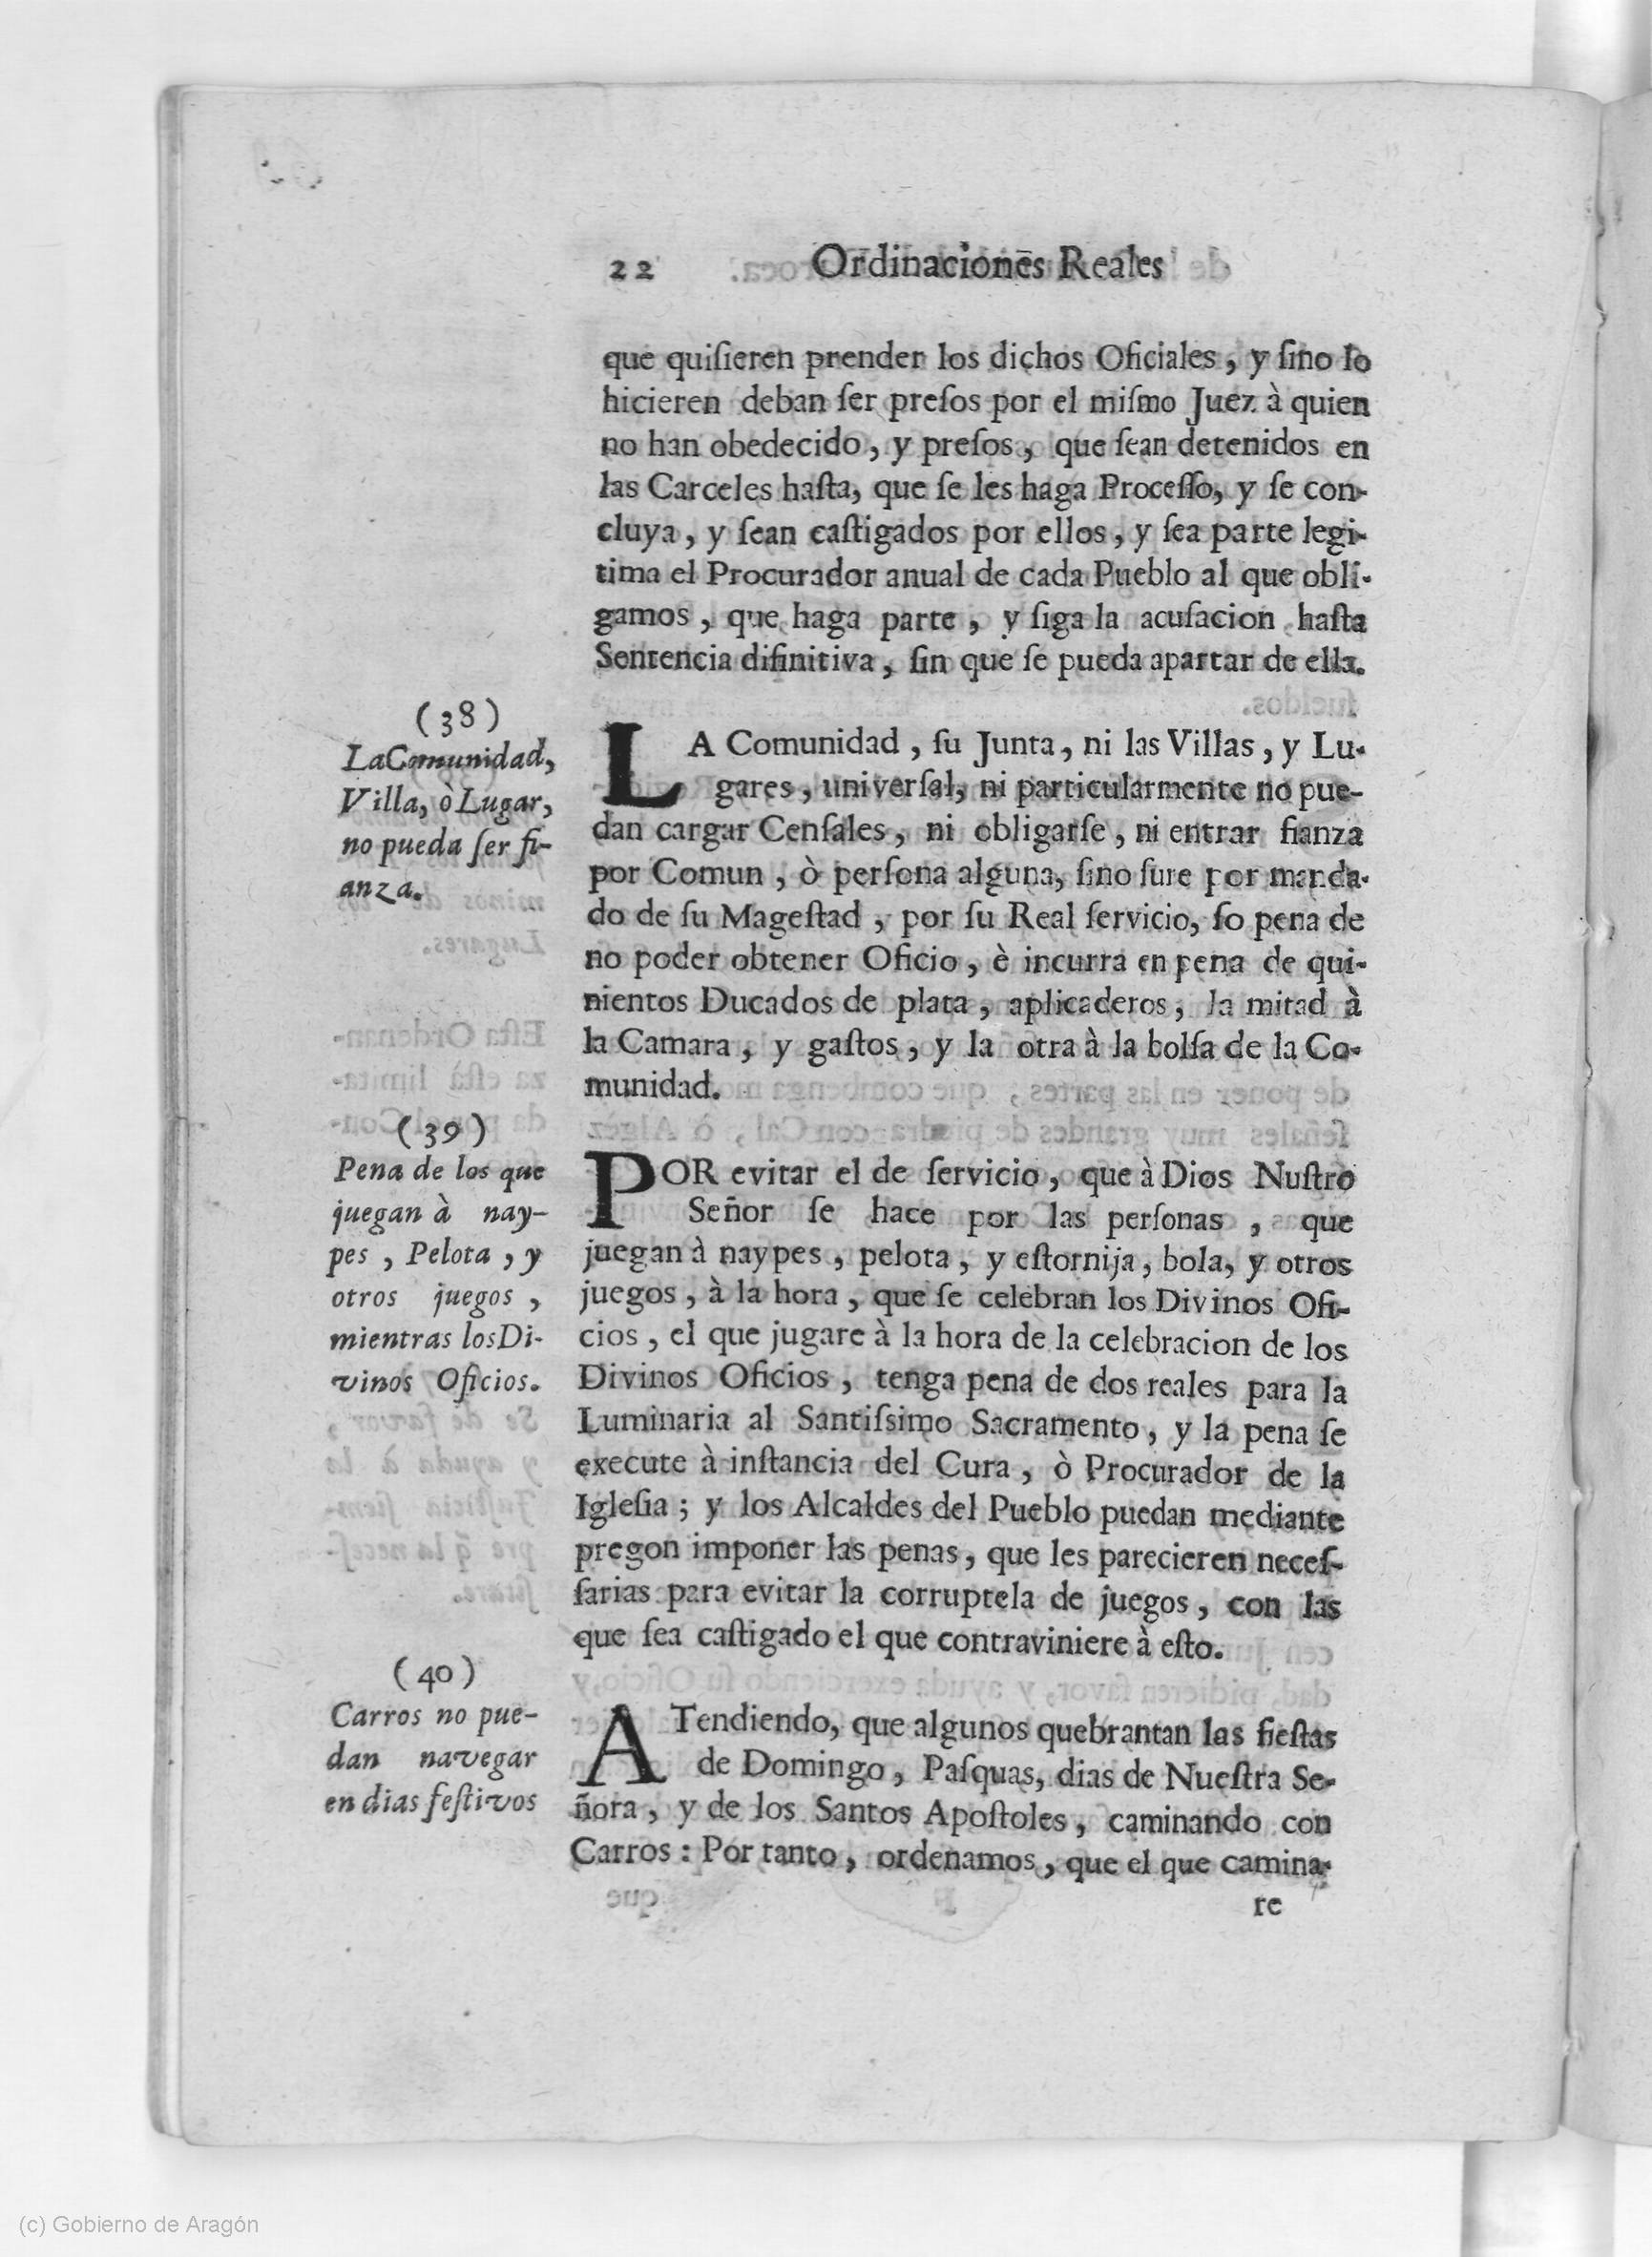 22 Ordinaciones Reales
que quiſieren prender los dichos Oficiales, y ſino lo
hicieren deban ſer preſos por el miſmo Juez à quien
no han obedecido, y preſos, que ſean detenidos en
las Carceles haſta, que ſe les haga Proceſſo, y ſe con-
cluya, y ſean caſtigados por ellos, y ſea parte legi-
tima el Procurador anual de cada Pueblo al que obli-
gamos, que haga parte, y ſiga la acuſacion haſta
Sentencia difinitiva, ſin que ſe pueda apartar de ella.
(38)
La Comunidad,
Villa, ò Lugar,
no pueda ſer fi-
anza.
LA Comunidad, ſu Junta, ni las Villas, y Lu-
gares, univerſal, ni particularmente no pue-
dan cargar Cenſales, ni obligarſe, ni entrar fianza
por Comun, ò perſona alguna, ſino fure por manda-
do de ſu Mageſtad, por ſu Real ſervicio, ſo pena de
no poder obtener Oficio, è incurra en pena de qui-
nientos Ducados de plata, aplicaderos, la mitad à
la Camara, y gaſtos, y la otra à la bolſa de la Co-
munidad.
(39)
Pena de los que
juegan à nay-
pes, Pelota, y
otros juegos,
mientras los Di-
vinos Oficios.
POR evitar el de ſervicio, que à Dios Nuſtro
Señor ſe hace por las perſonas, que
juegan à naypes, pelota, y eſtornija, bola, y otros
juegos, à la hora, que ſe celebran los Divinos Ofi-
cios, el que jugare à la hora de la celebracion de los
Divinos Oficios, tenga pena de dos reales para la
Luminaria al Santiſsimo Sacramento, y la pena ſe
execute à inſtancia del Cura, ò Procurador de la
Igleſia; y los Alcaldes del Pueblo puedan mediante
pregon imponer las penas, que les parecieren neceſ-
ſarias para evitar la corruptela de juegos, con las
que ſea caſtigado el que contraviniere à eſto.
(40)
Carros no pue-
dan navegar
en dias feſtivos
ATendiendo, que algunos quebrantan las fieſtas
de Domingo, Paſquas, dias de Nueſtra Se-
ñora, y de los Santos Apoſtoles, caminando con
Carros: Por tanto, ordenamos, que el que camina-
re
(c) Gobierno de Aragón